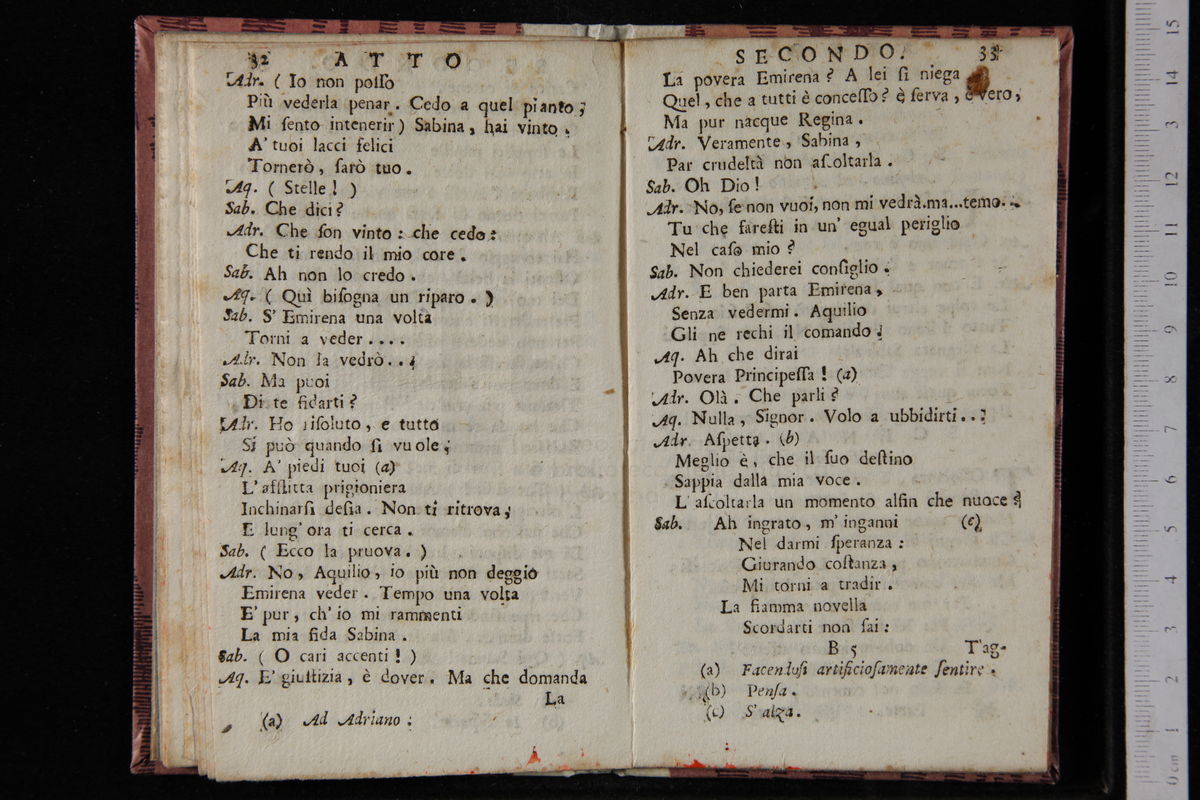 32 ATTO
Adr. ( Io non poſſo
Più vederla penar. Cedo a quel pianto;
Mi ſento intenerir) Sabina, hai vinto.
A' tuoi lacci felici
Tornerò, ſarò tuo.
Aq. ( Stelle! )
Sab. Che dici?
Adr. Che ſon vinto: che cedo:
Che ti rendo il mio core.
Sab. Ah non lo credo.
Aq. ( Quì biſogna un riparo. )
Sab. S' Emirena una volta
Torni a veder....
Adr. Non la vedrò...
Sab. Ma puoi
Di te fidarti?
Adr. Ho riſoluto, e tutto
Si può quando ſi vuole;
Aq. A' piedi tuoi (a)
L' afflitta prigioniera
Inchinarſi deſia. Non ti ritrova,
E lung' ora ti cerca.
Sab. ( Ecco la pruova. )
Adr. No, Aquilio, io più non deggio
Emirena veder. Tempo una volta
E' pur, ch' io mi rammenti
La mia fida Sabina.
Sab. ( O cari accenti! )
Aq. E' giuſtizia, è dover. Ma che domanda
La
(a) Ad Adriano.
SECONDO. 33
La povera Emirena? A lei ſi niega
Quel, che a tutti è conceſſo? è ſerva, è vero,
Ma pur nacque Regina.
Adr. Veramente, Sabina,
Par crudeltà non aſcoltarla.
Sab. Oh Dio!
Adr. No, ſe non vuoi, non mi vedrà.ma...temo...
Tu che fareſti in un' egual periglio
Nel caſo mio?
Sab. Non chiederei conſiglio.
Adr. E ben parta Emirena,
Senza vedermi. Aquilio
Gli ne rechi il comando.
Aq. Ah che dirai
Povera Principeſſa! (a)
Adr. Olà. Che parli?
Aq. Nulla, Signor. Volo a ubbidirti...
Adr. Aſpetta. (b)
Meglio è, che il ſuo deſtino
Sappia dalla mia voce.
L' aſcoltarla un momento alfin che nuoce?
Sab. Ah ingrato, m' inganni (c)
Nel darmi ſperanza:
Giurando coſtanza,
Mi torni a tradir.
La fiamma novella
Scordarti non ſai:
B 5 T'ag-
(a) Facendoſi artificioſamente ſentire.
(b) Penſa.
(c) S' alza.